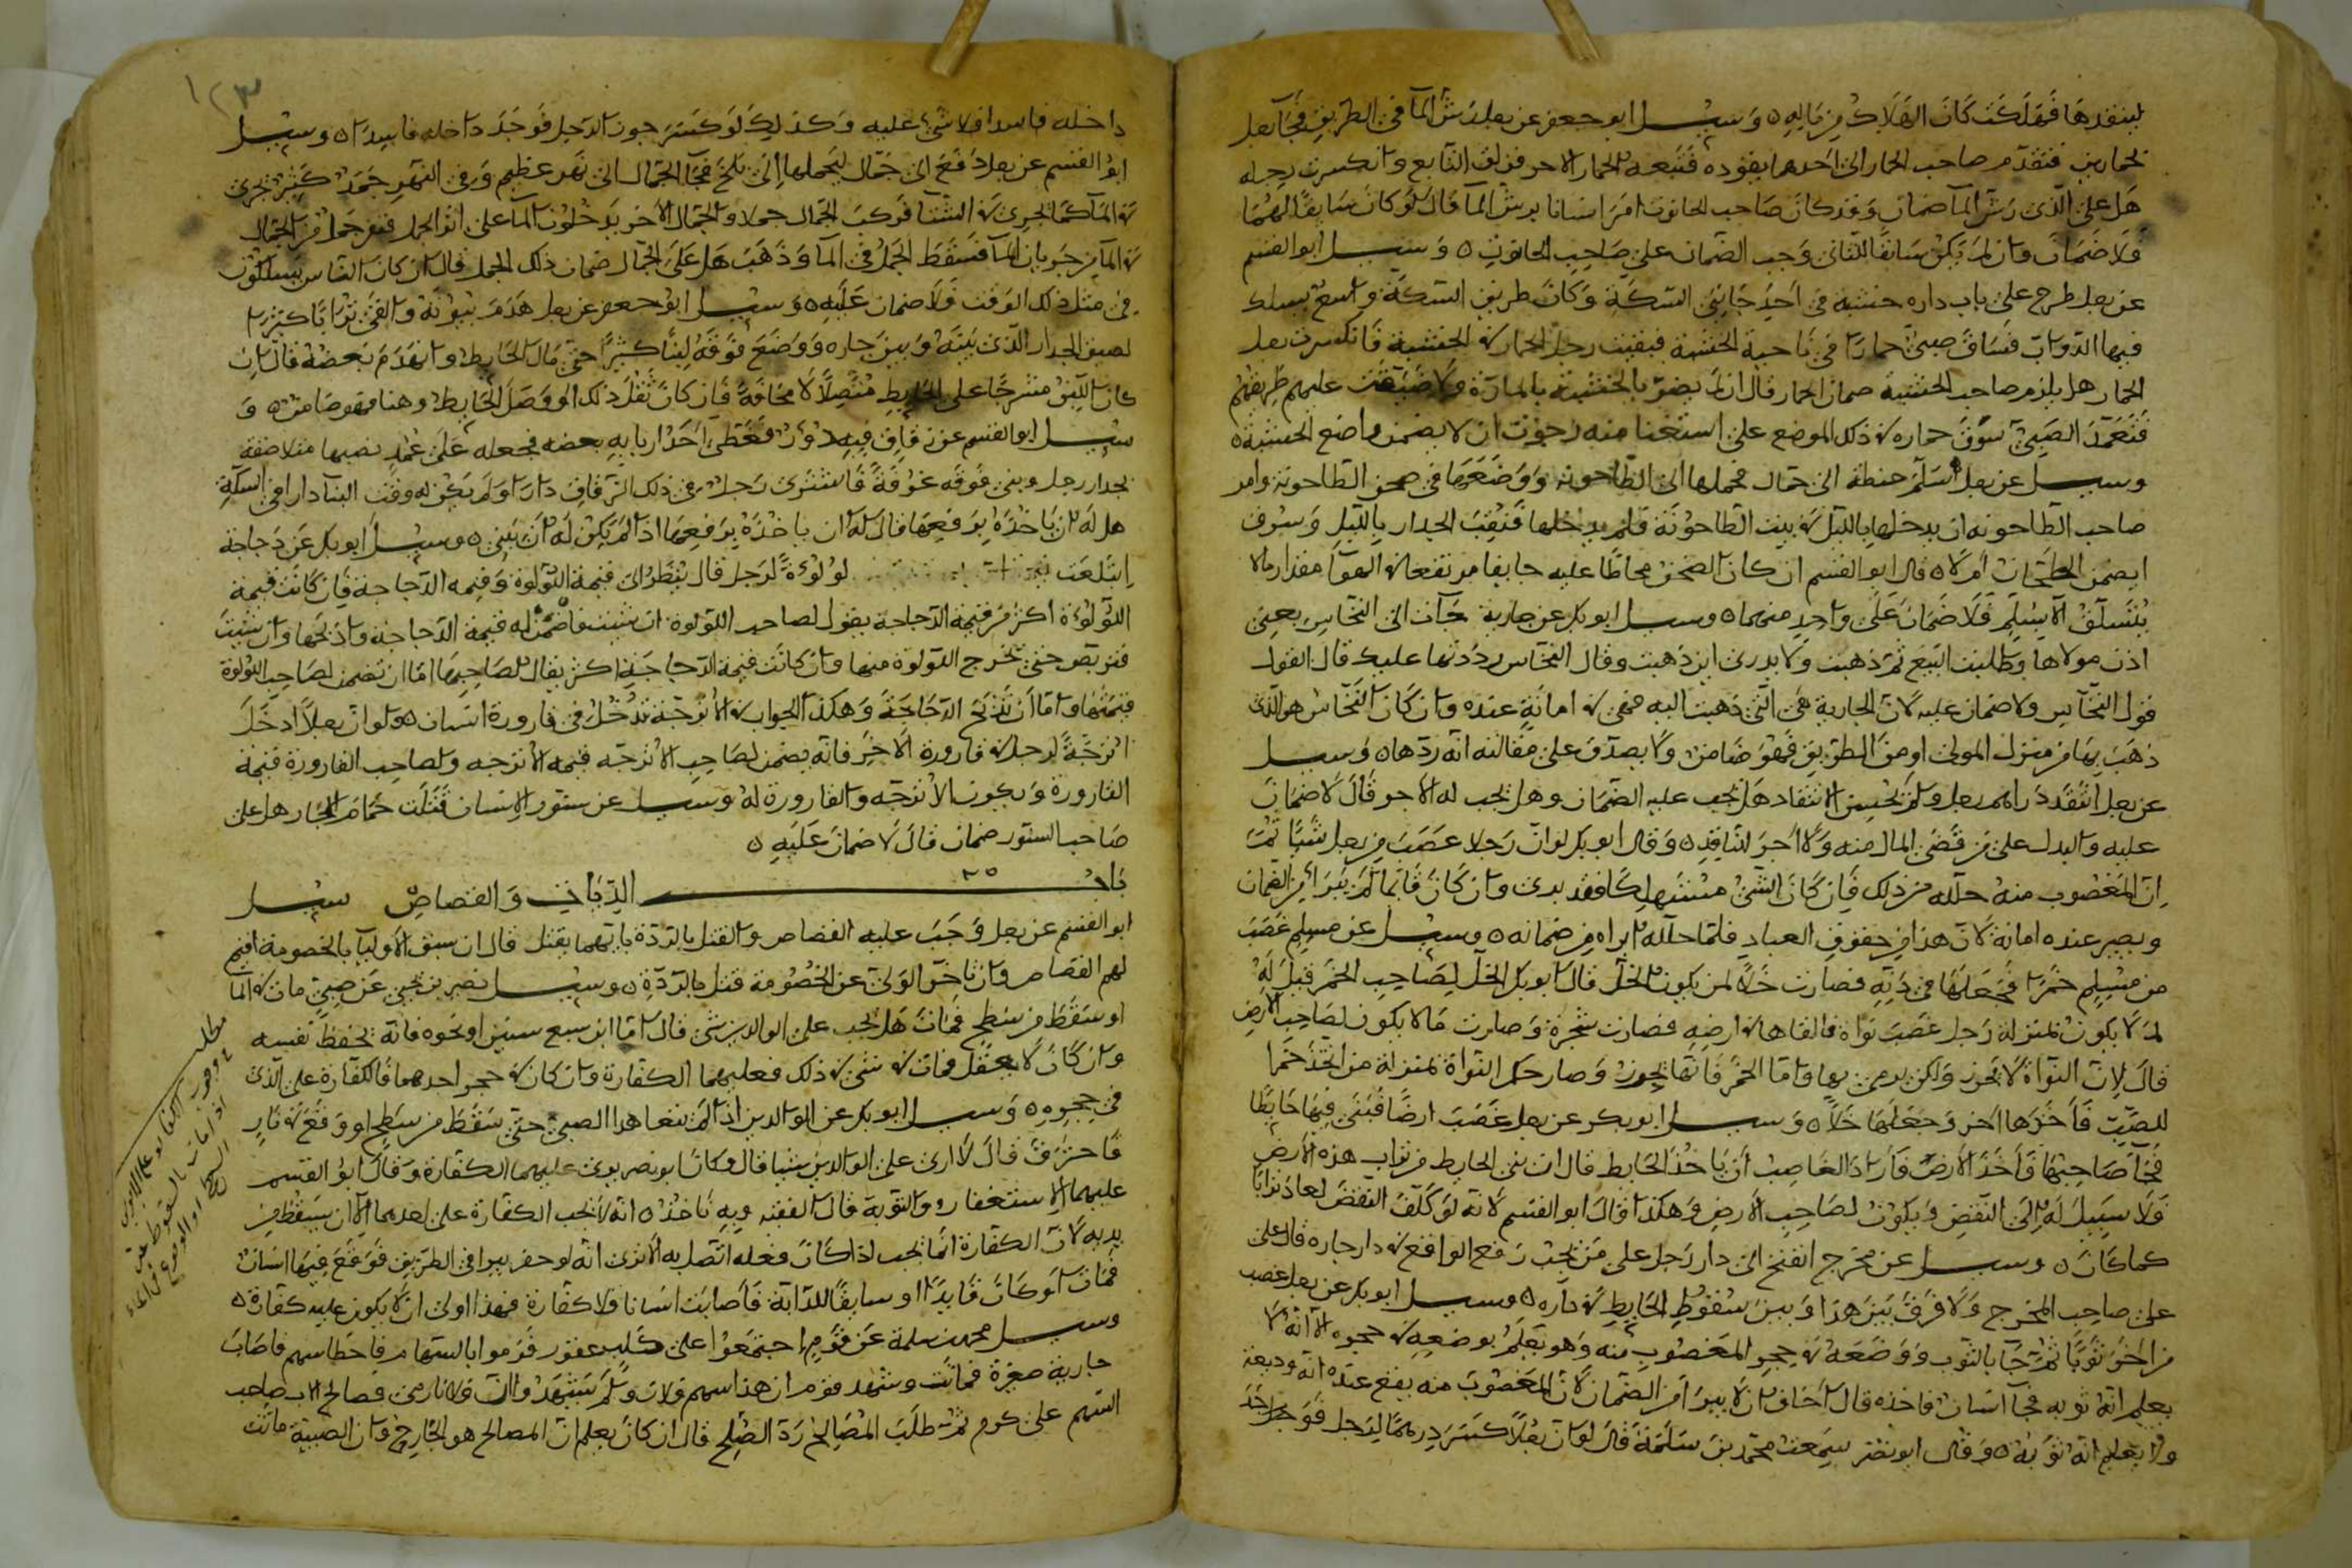 لينقدها فهلكت كان الهلاك من ماله ٥ وسئل ابو جعفر عن رجل رش المآ في الطريق فجآ رجل
بحمارين فتقدم صاحب الحمار الى احدهما يقوده فتبعه الحمار الاخر فزلق التابع وانكسرت رجله
هل على الذى رش المآ ضمان وقد كان صاحب الحانوت امر انسانا برش المآ قال لو كان سابقا لهما
فلا ضمان وان لم يكن سابقا للثانى وجب الضمان على صاحب الحانوت ٥ وسئل ابو القسم
عن رجل طرح على باب داره خشبة في احد جانبى السكة وكان طريق السكة واسع يسلك
فيها الدواب فساق صبى حمارا في ناحية الخشبة فبقيت رجل الحمار في الخشبة فانكسرت رجل
الحمار هل يلزم صاحب الخشبة ضمان الحمار قال ان لم يضر بالخشبة بالمارة ولا ضيقت عليهم طريقهم
فتعمد الصبى سوق حماره في ذلك الموضع على استغنا منه رجوت ان لا يضمن واضع الخشبة ٥
وسئل عن رجل اسلم حنطة الى حمال فحملها الى الطاحونه ووضعها في صحن الطاحونة وامر
صاحب الطاحونه ان يدخلها بالليل في بيت الطاحونة فلم يدخلها فنقب الجدار بالليل وسرق
ايضمن الطحان ام لا ٥ قال ابو القسم ان كان الصحن محاطا عليه حايطا مرتفعا في الهوآ مقدار ما لا
يتسلق الا بسلم فلا ضمان على واحد منهما ٥ وسئل ابو بكر عن جارية جآت الى النخاس بغير
اذن مولاها وطلبت البيع ثم ذهبت ولا يدرى اين ذهبت وقال النخاس رددتها عليك قال القول
قول النخاس ولا ضمان عليه لان الجارية هى التى ذهبت اليه فهى في امانة عنده وان كان النخاس هو الذى
ذهب بها من منزل المولى او من الطريق فهو ضامن ولا يصدق على مقالته انه ردها ٥ وسئل
عن رجل انتقد دراهم رجل ولم يحسن الانتقاد هل يجب عليه الضمان وهل يجب له الاجر قال لا ضمان
عليه والبدل على من قضى المال منه ولا اجر للناقد ٥ وقال ابو بكر لو ان رجلا غصب من رجل شيئا ثم
ان المغصوب منه حلله من ذلك فان كان الشئ مستهلكا فقد برى وان كان قائما لم يبرا من الضمان
ويصير عنده امانة لان هذا من حقوق العباد فلما حلله ابراه من ضمانه ٥ وسئل عن مسلم غصب
من مسلم خمرا فجعلها في دنه فصارت خلا لمن يكون الخل قال ابو بكر الخل لصاحب الخمر قيل له
لم لا يكون بمنزلة رجل غصب نواة فالقاها في ارضه فصارت شجرة وصارت مالا يكون لصاحب الارض
قال لان النواة لا تحرز ولكن يرمى بها واما الخمر فانها تحرز وصار حكم النواة بمنزلة من اتخذ خمرا
للصب فاخذها اخر وجعلها خلا ٥ وسئل ابو بكر عن رجل غصب ارضا فبنى فيها حايطا
فجآ صاحبها فاخذ الارض فاراد الغاصب ان ياخذ الحايط قال ان بنى الحايط من تراب هذه الارض
فلا سبيل له الى النقض ويكون لصاحب الارض وهكذا قال ابو القسم لانه لو كلف النقض لعاد ترابا
كما كان ٥ وسئل عن مخرج انفتح الى دار رجل على من يجب رفع الواقع في دار جاره قال على
على صاحب المخرج ولا فرق بين هذا وبين سقوط الحايط في داره ٥ وسئل ابو بكر عن رجل غصب
من اخر ثوبا ثم جآ بالثوب ووضعه في حجر المغصوب منه وهو يعلم بوضعه في حجره الا انه لا
يعلم انه ثوبه فجآ انسان فاخذه قال اخاف ان لا يبرا من الضمان لان المغصوب منه يقع عنده انه وديعة
ولا يعلم انه ثوبه ٥ وقال ابو نصر سمعت محمد بن سلمة قال لو ان رجلا كسر درهما لرجل فوجد
داخله فاسدا فلا شئ عليه وكذلك لو كسر جوز الرجل فوجد داخله فاسدا ٥ وسئل
ابو القسم عن رجل دفع الى جمال ليحملها الى بلخ فجآ الجمال الى نهر عظيم وفي النهر جمد كثير يجرى
في المآ كما يجرى في الشتا فركب الجمال جملا والجمال الاخر يدخلون المآ على اثر الحمل فنفر جمل من الجمال
في المآ من جريان المآ فسقط الجمل في المآ وذهب هل على الجمال ضمان ذلك الحمل قال ان كان الناس يسلكون
في مثل ذلك الوقت فلا ضمان عليه ٥ وسئل ابو جعفر عن رجل هدم بيوته والقى ترابا كثيرا
لصيق الجدار الذى بينه وبين جاره ووضع فوقه لبنا كثيرا حتى مال الحايط وانهدم بعضه قال ان
كان اللبن مشرجا على الحايط متصلا لا محافة فان كان ثقل ذلك الوصل الحايط وهنا فهو ضامن ٥ و
سئل ابو القسم عن زقاق فيه دور فغطى احد اربابه بعضه فجعله على عمد نصبها متلاصقة
بجدار رجل وبنى فوقه غرفة فاشترى رجل في ذلك الزقاق دارا ولم يكن له وقت البنا دارا في السكة
هل له ان ياخذه برفعها قال له ان ياخذه برفعها اذا لم يكن له ان يبنى ٥ وسئل ابو بكر عن دجاجة
ابتلعت لولوة لرجل قال ينظر الى قيمة اللولوة وقيمه الدجاجة فان كانت قيمة
اللولوة اكثر من قيمة الدجاجة يقول لصاحب اللولوة ان شئت فاضمن له قيمة الدجاجة واذبحها وان شئت
فتربص حتى تخرج اللولوة منها وان كانت قيمة الدجاجة اكثر يقال لصاحبها اما ان تضمن لصاحب اللولوة
قيمتها واما ان تذبح الدجاجة وهكذا الجواب في الاترجة تدخل في قارورة انسان ٥ ولو ان رجلا ادخل
اترجة لرجل في قارورة الاخر فانه يضمن لصاحب الاترجه قيمه الاترجه ولصاحب القارورة قيمة
القارورة ويكون الاترجه والقارورة له ٥ وسئل عن سنور الانسان قتلت حمام الجار هل على
صاحب السنور ضمان قال لا ضمان عليه ٥
باب الديات والقصاص سئل
ابو القسم عن رجل وجب عليه القصاص والقتل بالردة بايهما يقتل قال ان سبق الاوليا بالخصومة اقيم
لهم القصاص وان تاخر الولى عن الخصومة قتل بالردة ٥ وسئل نصير بن يحيى عن صبى مات في المآ
او سقط من سطح فمات هل يجب على الوالدين شئ قال اما ابن سبع سنين او نحوه فانه يحفظ نفسه
وان كان لا يعقل فمات في شئ في ذلك فعليهما الكفارة وان كان في حجر احدهما فالكفارة على الذى
في حجره ٥ وسئل ابو بكر عن الوالدين اذا لم يتعاهدا الصبى حتى سقط من سطح او وقع في نار
فاحترق قال لا ارى على الوالدين شيا قال وكان ابو نصر يرى عليهما الكفارة وقال ابو القسم
عليهما الاستغفار والتوبة قال الفقيه وبه ناخذ ٥ انه لا تجب الكفارة على احدهما الا ان يسقط من
يده لان الكفارة انما تجب اذا كان فعله اتصل به الا ترى انه لو حفر بيرا في الطريق فوقع فيها انسان
فمات او كان قايدا او سايقا للدابة فاصابت انسانا فلا كفارة فهذا اولى ان لا يكون عليه كفارة ٥
وسئل محمد بن سلمة عن قوم اجتمعوا على كلب عقور فرموا بالسهام فاخطا سهم فاصاب
جارية صغيرة فماتت وشهد قوم ان هذا سهم فلان ولم يشهدوا ان فلانا رمى فصالح الاب صاحب
السهم على كرم ثم طلب المصالح رد الصلح قال ان كان يعلم ان المصالح هو الجارح وان الصبية ماتت
١٢٣
مطلب
في وجوب الكفارة على الابوين